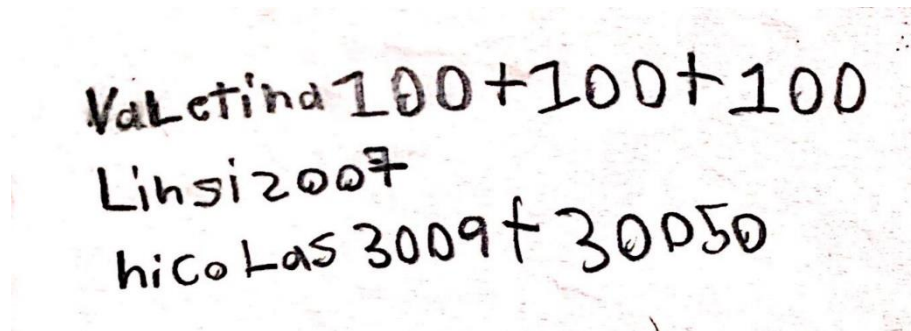 Valetina 100+100+100
Linsi 2007
nicolas 3009+30050